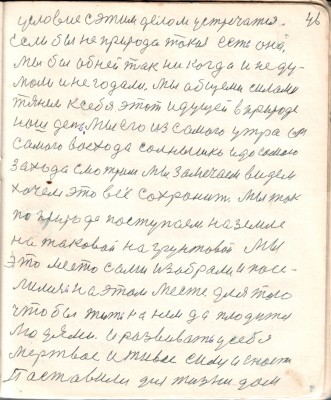 46
условие с этим делом устречатся.
Если бы не природа такая есть она,
Мы бы об ней так никогда и не ду-
мали и не гадали. Мы общеми силами
тянем к себя этот идущей в природе
наш день, Мы его из самого утра
самого восхода солнышка и до самого
захода смотрим Мы замечаем видем
хочем это всё сохранит. Мы так
по природе поступаем на земле
на таковой на грунтовой Мы
это место сами избрали и посе-
лились на этом месте для того
чтобы жить на нем да плодится
людями. и развивать у себя
мертвое и живое силу и
Поставили для жизни дом